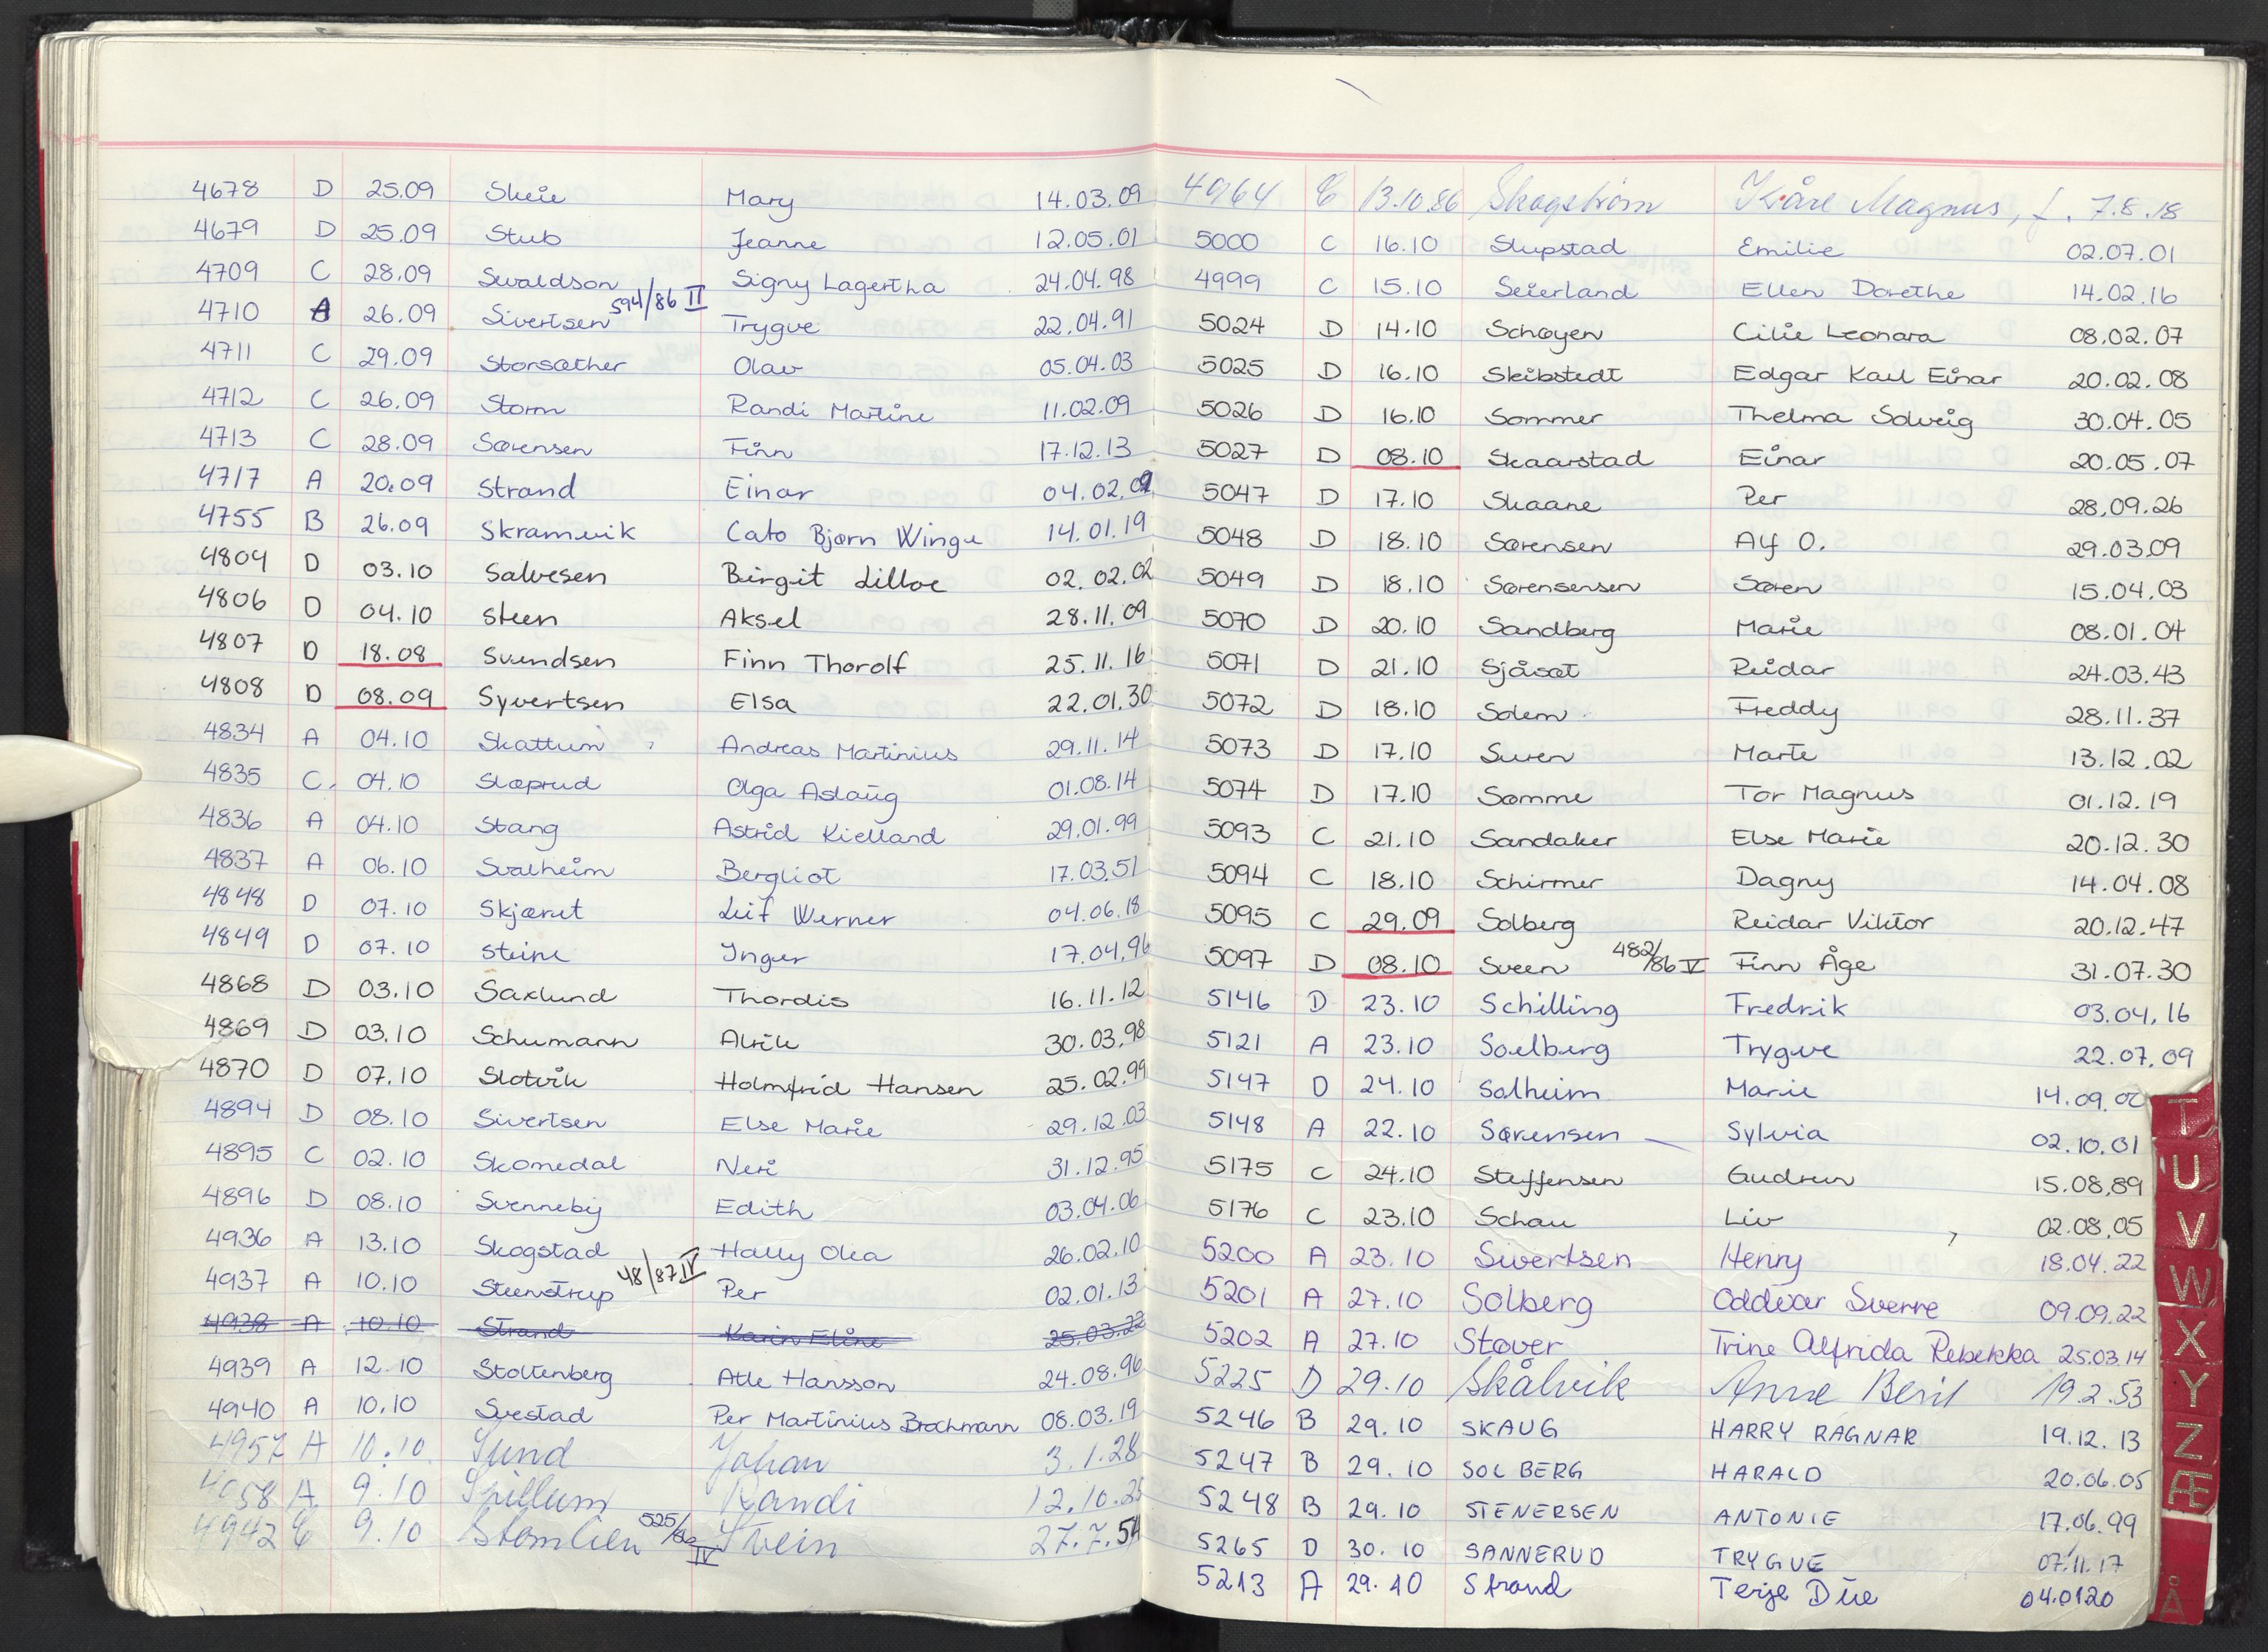 4678 D 25.09 Skeie Mary 14.03.09
4679 D 25.09 Stub Jeanne 12.05.01
4709 C 28.09 Swaldson Signy Lagertha 24.04.98
4710 A 26.09 Sivertsen 594/86 II Trygve 22.04.91
4711 C 29.09 Storsæther Olav 05.04.03
4712 C 26.09 Storm Randi Martine 11.02.09
4713 C 28.09 Sørensen Finn 17.12.13
4717 A 20.09 Strand Einar 04.02.02
4755 B 26.09 Skramvik Cato Bjørn Winge 14.01.19
4804 D 03.10 Salvesen Birgit Lilloe 02.02.02
4806 D 04.10 Steen Aksel 28.11.09
4807 D 18.08 Svendsen Finn Thorolf 25.11.16
4808 D 08.09 Syvertsen Elsa 22.01.30
4834 A 04.10 Skattum Andreas Martinius 29.11.14
4835 C 04.10 Slæprud Olga Aslaug 01.08.14
4836 A 04.10 Stang Astrid Kielland 29.01.99
4837 A 06.10 Svalheim Bergliot 17.03.51
4848 D 07.10 Skjæret Leif Werner 04.06.18
4849 D 07.10 Steine Inger 17.04.96
4868 D 03.10 Saxlund Thordis 16.11.12
4869 D 03.10 Schumann Alvik 30.03.98
4870 D 07.10 Slotvik Holmfrid Hansen 25.02.99
4894 D 08.10 Sivertsen Else Marie 29.12.03
4895 C 02.10 Skomedal Neri 31.12.95
4896 D 08.10 Svenneby Edith 03.04.06
4936 A 13.10 Skogstad Hally Olea 26.02.10
4937 A 10.10 Steenstrup 48/87 IV Per 02.01.13
4938 A 10.10 Strand Karin Eline 25.03.22
4939 A 12.10 Stoltenberg Atle Hansson 24.08.96
4940 A 10.10 Svestad Per Martinius Brochmann 08.03.19
4957 A 10.10 Sund Johan 3.1.28
4958 A 9.10 Spillum Randi 12.10.25
4942 C 9.10 Stemlien 525/86 IV Svein 27.7.54
4964 C 13.10.86 Skogstrøm Kåre Magnus, f. 7.8.18
5000 C 16.10 Slupstad Emilie 02.07.01
4999 C 15.10 Seierland Ellen Dorethe 14.02.16
5024 D 14.10 Schøyen Cilie Leonara 08.02.07
5025 D 16.10 Skibstedt Edgar Karl Einar 20.02.08
5026 D 16.10 Sommer Thelma Solveig 30.04.05
5027 D 08.10 Skaarstad Einar 20.05.07
5047 D 17.10 Skaane Per 28.09.26
5048 D 18.10 Sørensen Alf O. 29.03.09
5049 D 18.10 Sørensensen Søren 15.04.03
5070 D 20.10 Sandberg Marie 08.01.04
5071 D 21.10 Sjåsæt Reidar 24.03.43
5072 D 18.10 Solem Freddy 28.11.37
5073 D 17.10 Suren Marte 13.12.02
5074 D 17.10 Sømme Tor Magnus 01.12.19
5093 C 21.10 Sandaker Else Marie 20.12.30
5094 C 18.10 Schirmer Dagny 14.04.08
5095 C 29.09 Solberg Reidar Viktor 20.12.47
5097 D 08.10 Sveen 482/86 V Finn Åge 31.07.30
5146 D 23.10 Schilling Fredrik 03.04.16
5121 A 23.10 Soelberg Trygve 22.07.09
5147 D 24.10 Solheim Marie 14.09.00
5148 A 22.10 Sørensen Sylvia 02.10.01
5175 C 24.10 Steffensen Gudrun 15.08.89
5176 C 23.10 Schau Liv 02.08.05
5200 A 23.10 Sivertsen Henry 18.04.22
5201 A 27.10 Solberg Oddvar Sverre 09.09.22
5202 A 27.10 Støver Trine Alfrida Rebekka 25.03.14
5225 D 29.10 Skålvik Anne Berit 19.2.53
5246 B 29.10 SKAUG HARRY RAGNAR 19.12.13
5247 B 29.10 SOLBERG HARALD 20.06.05
5248 B 29.10 STENERSEN ANTONIE 17.06.99
5265 D 30.10 SANNERUD TRYGVE 07.11.17
5213 A 29.10 Strand Terje Due 04.01.20
T
U
V
W
X
Y
Z
Æ
Å